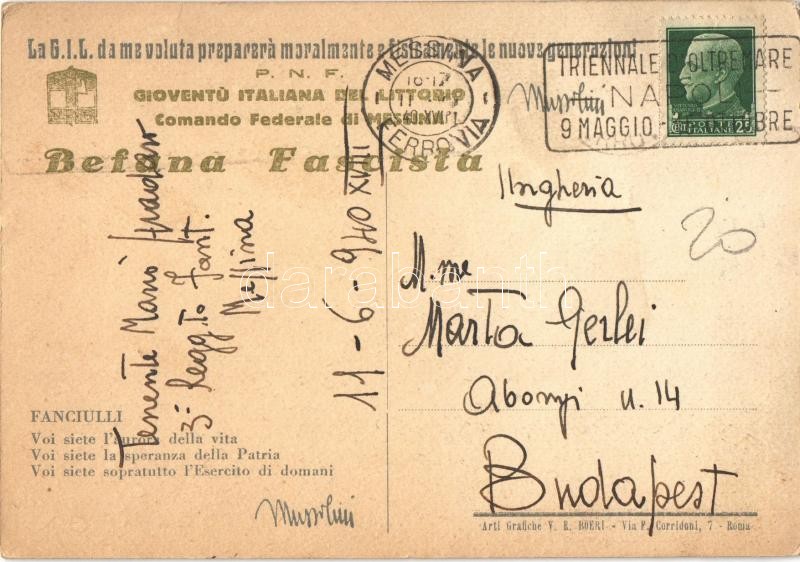 La G.I.L. da me voluta preparerà moralmente e fisicamente le nuove generazioni
P. N. F.
GIOVENTÙ ITALIANA DEL LITTORIO
Comando Federale di MESSINA
Befana Fascista
MESSINA
FERROVIA
TRIENNALE D'OLTREMARE
NAPOLI
9 MAGGIO
POSTE ITALIANE
25
Mussolini
Ungheria
20
M.me
Marta Gerlei
Abonyi u. 14
Budapest
Tenente Mario
3° Regg.to Fant.
Messina
11-6-940 XVIII
FANCIULLI
Voi siete l'aurora della vita
Voi siete la speranza della Patria
Voi siete sopratutto l'Esercito di domani
Mussolini
Arti Grafiche V. E. BOERI - Via F. Corridoni, 7 - Roma
darabanth